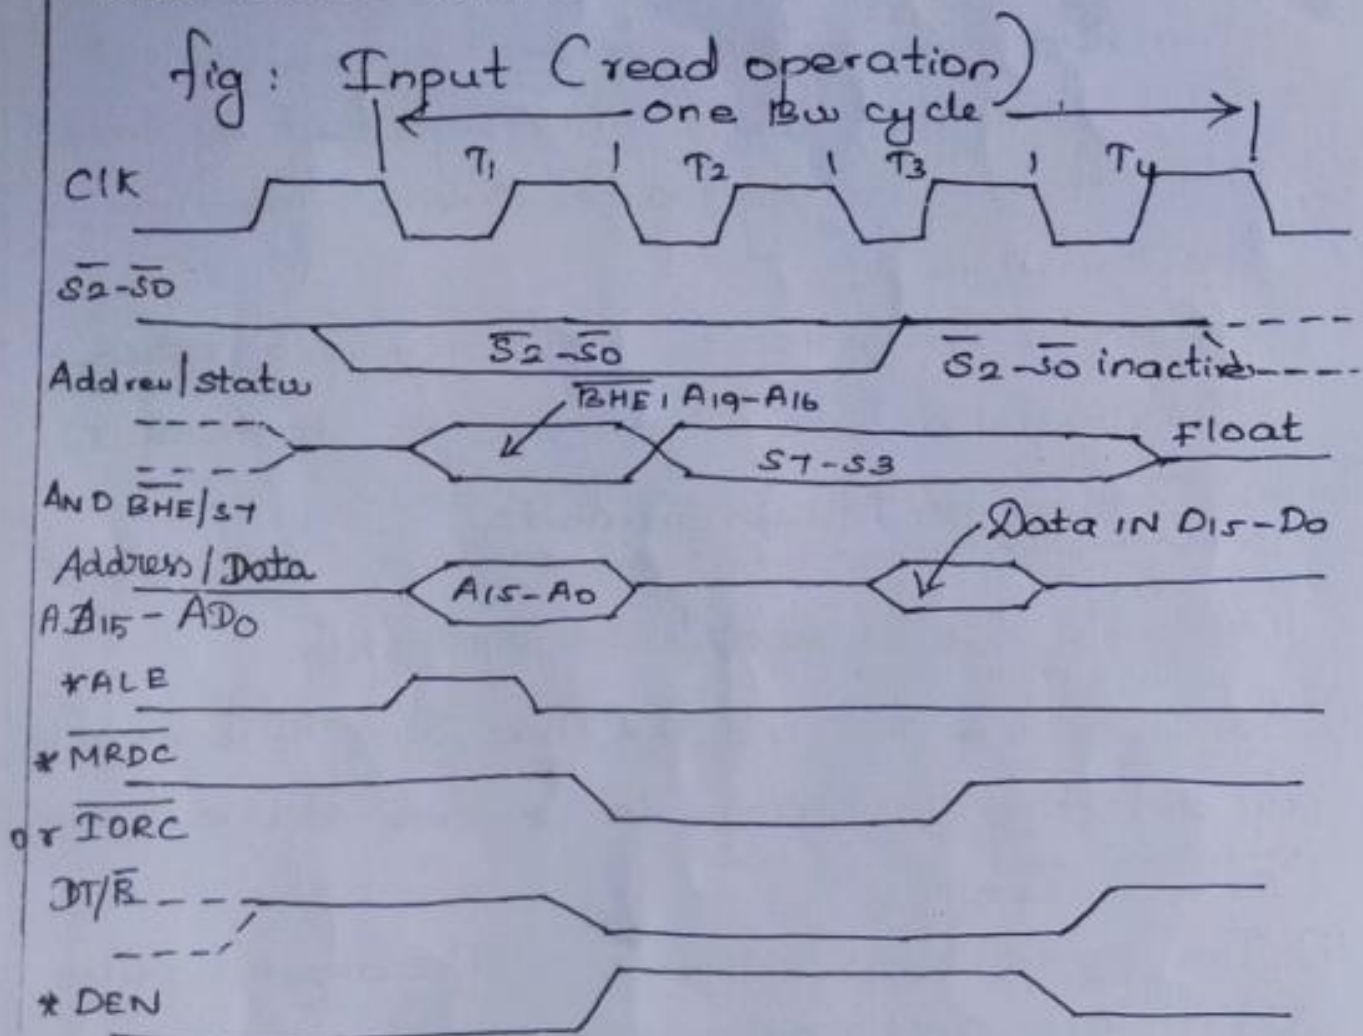 fig: Input (read operation)
one Bus cycle
T1 T2 T3 T4
ClK
S̅2-S̅0
S̅2-S̅0
S̅2-S̅0 inactive
Address/status
B̅H̅E̅, A19-A16
Float
S7-S3
AND B̅H̅E̅/S7
Data IN D15-D0
Address/Data
A15-A0
AD15-AD0
*ALE
*M̅R̅D̅C̅
or I̅O̅R̅C̅
DT/R̅
*DEN